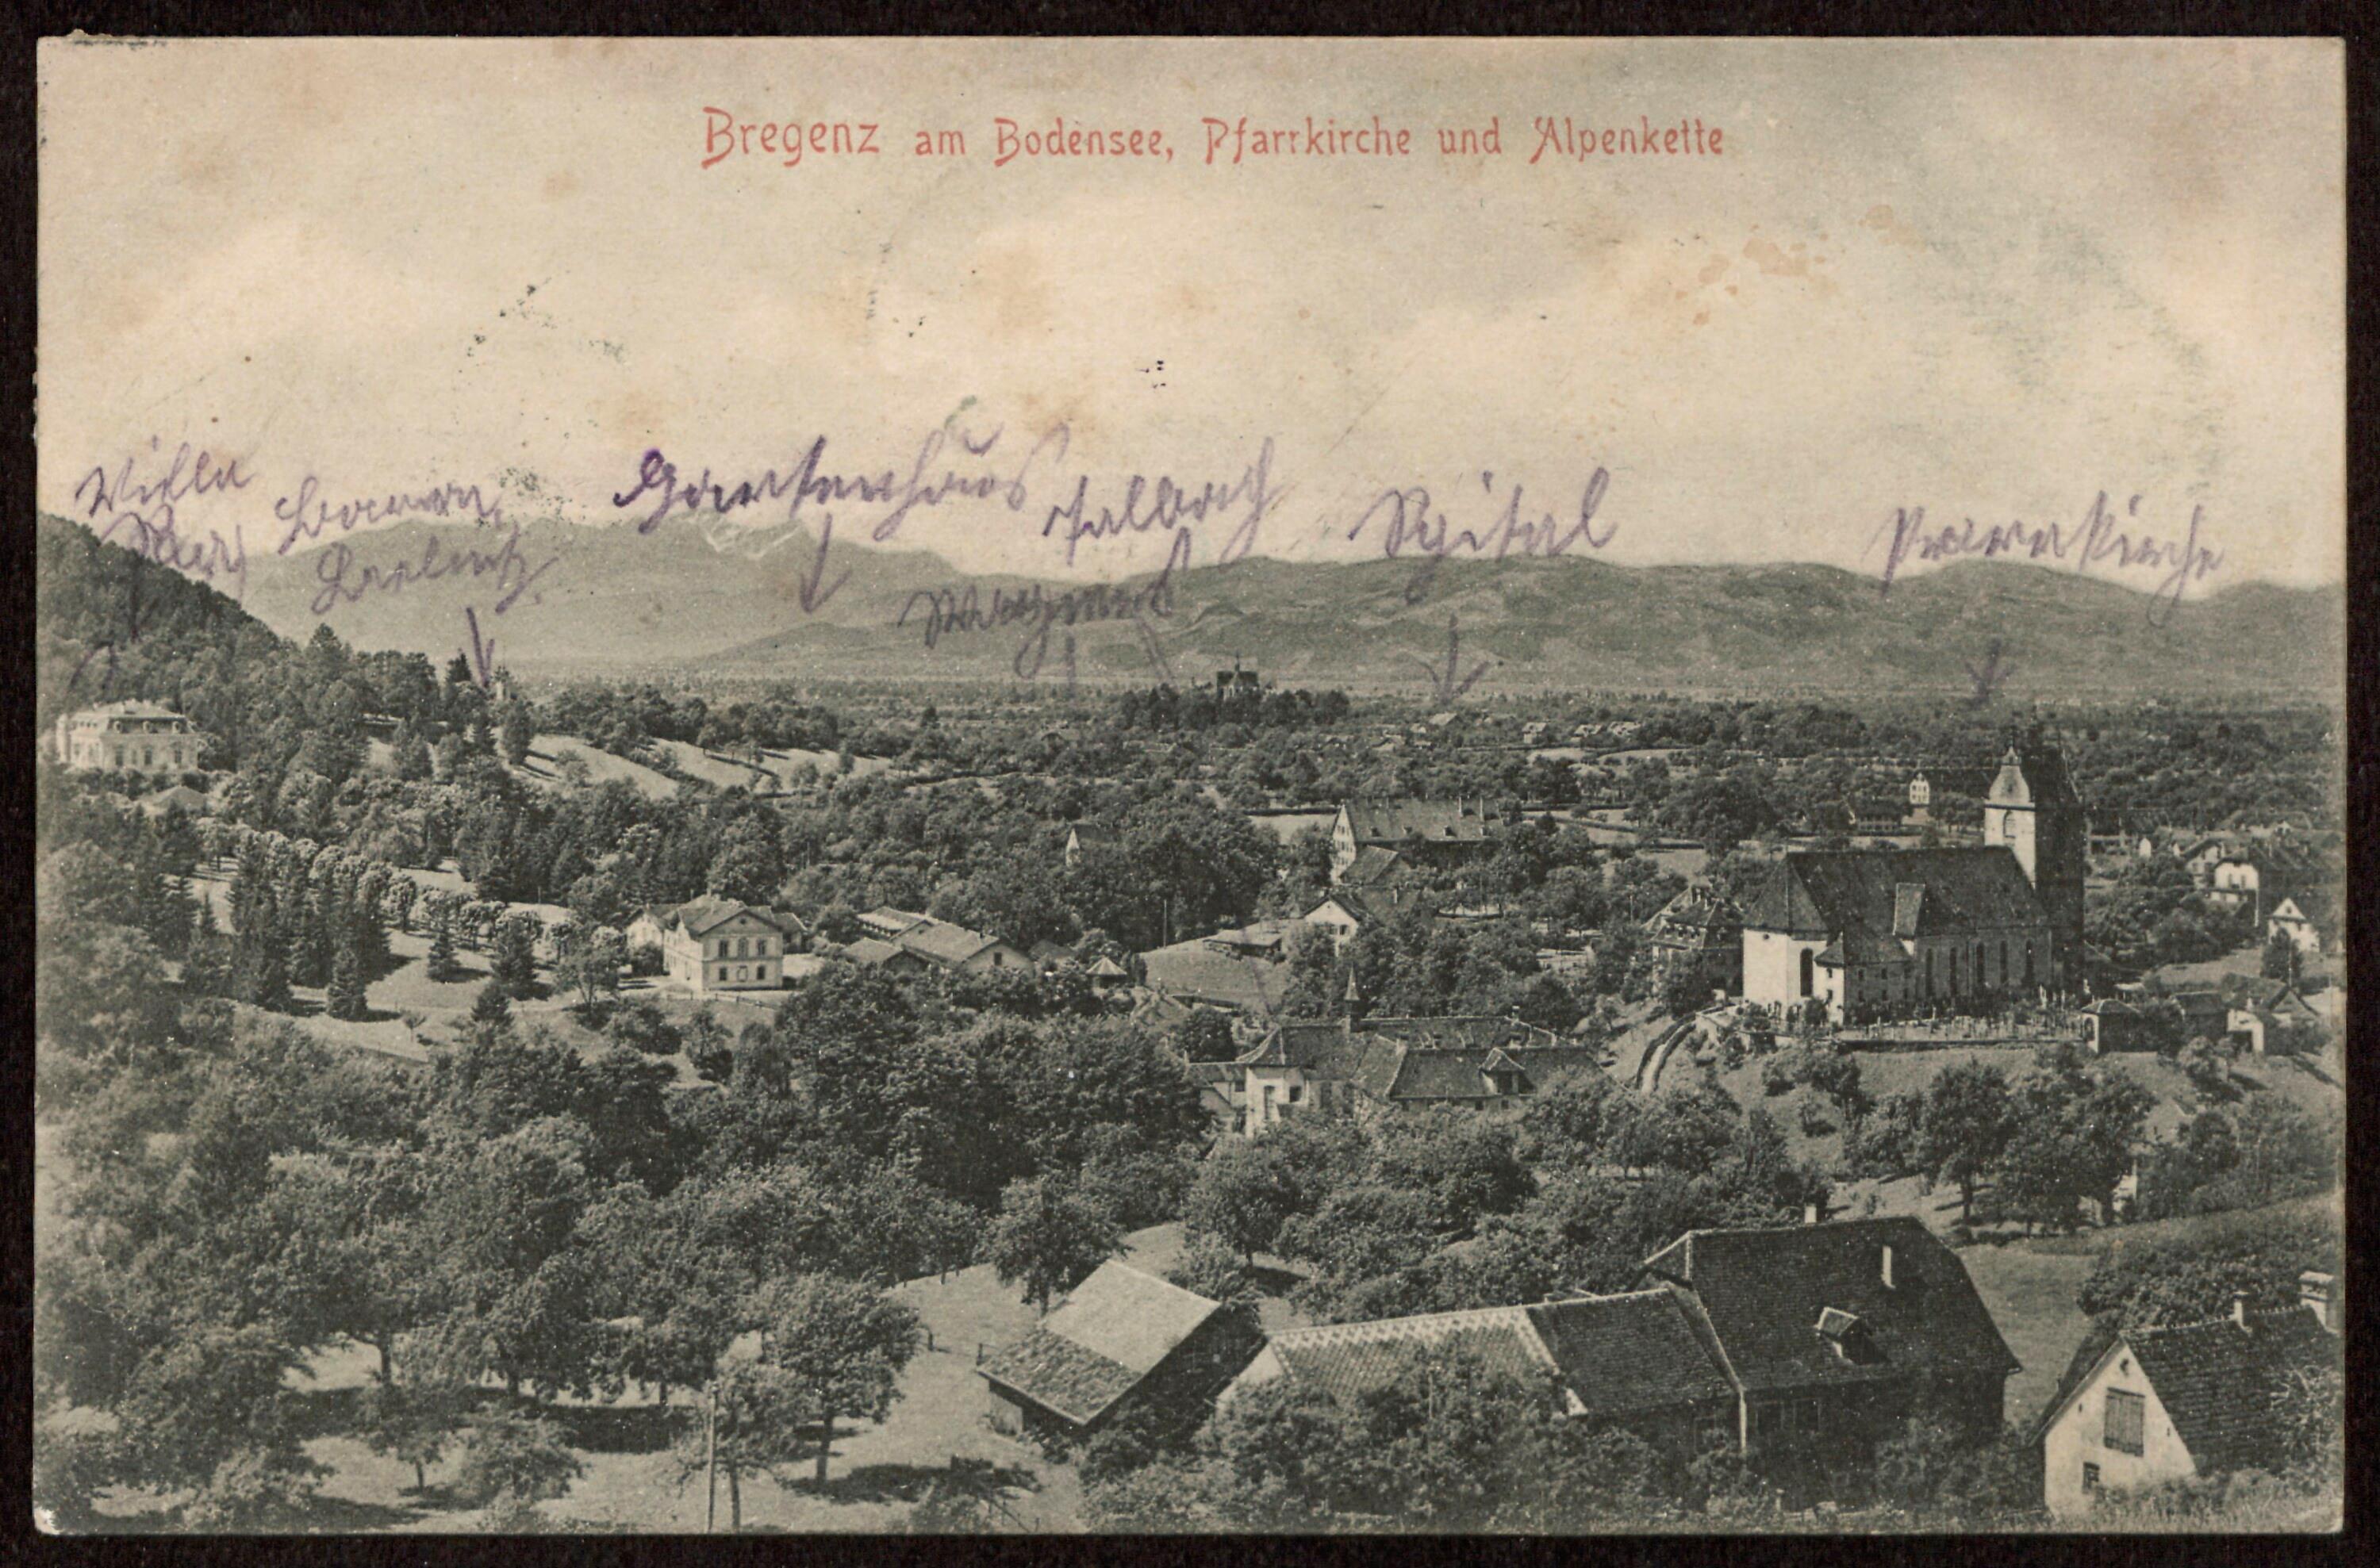 Bregenz am Bodensee, Pfarrkirche und Alpenkette
Villa
Gartenhaus
Talbach
Spital
Pfarrkirche